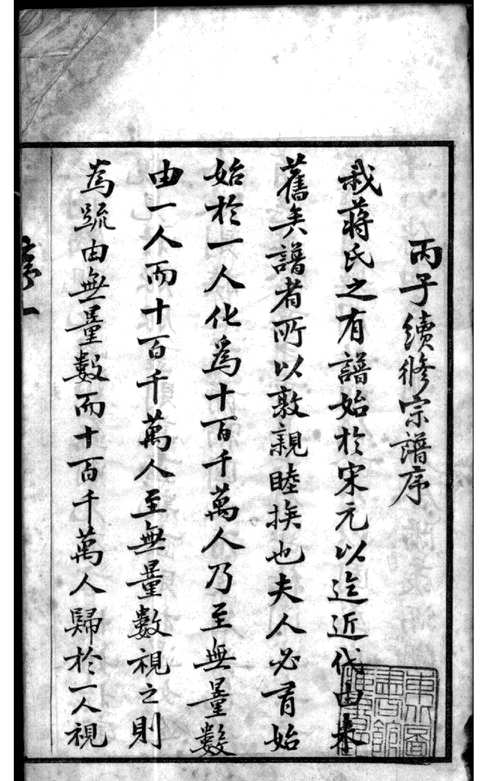 丙子續修宗譜序
我蔣氏之有譜始於宋元以迄近代由來
舊矣譜者所以敦親睦族也夫人必有始
始於一人化爲十百千萬人乃至無量數
由一人而十百千萬人至無量數視之則
為疏由無量數而十百千萬人歸於一人視
序一